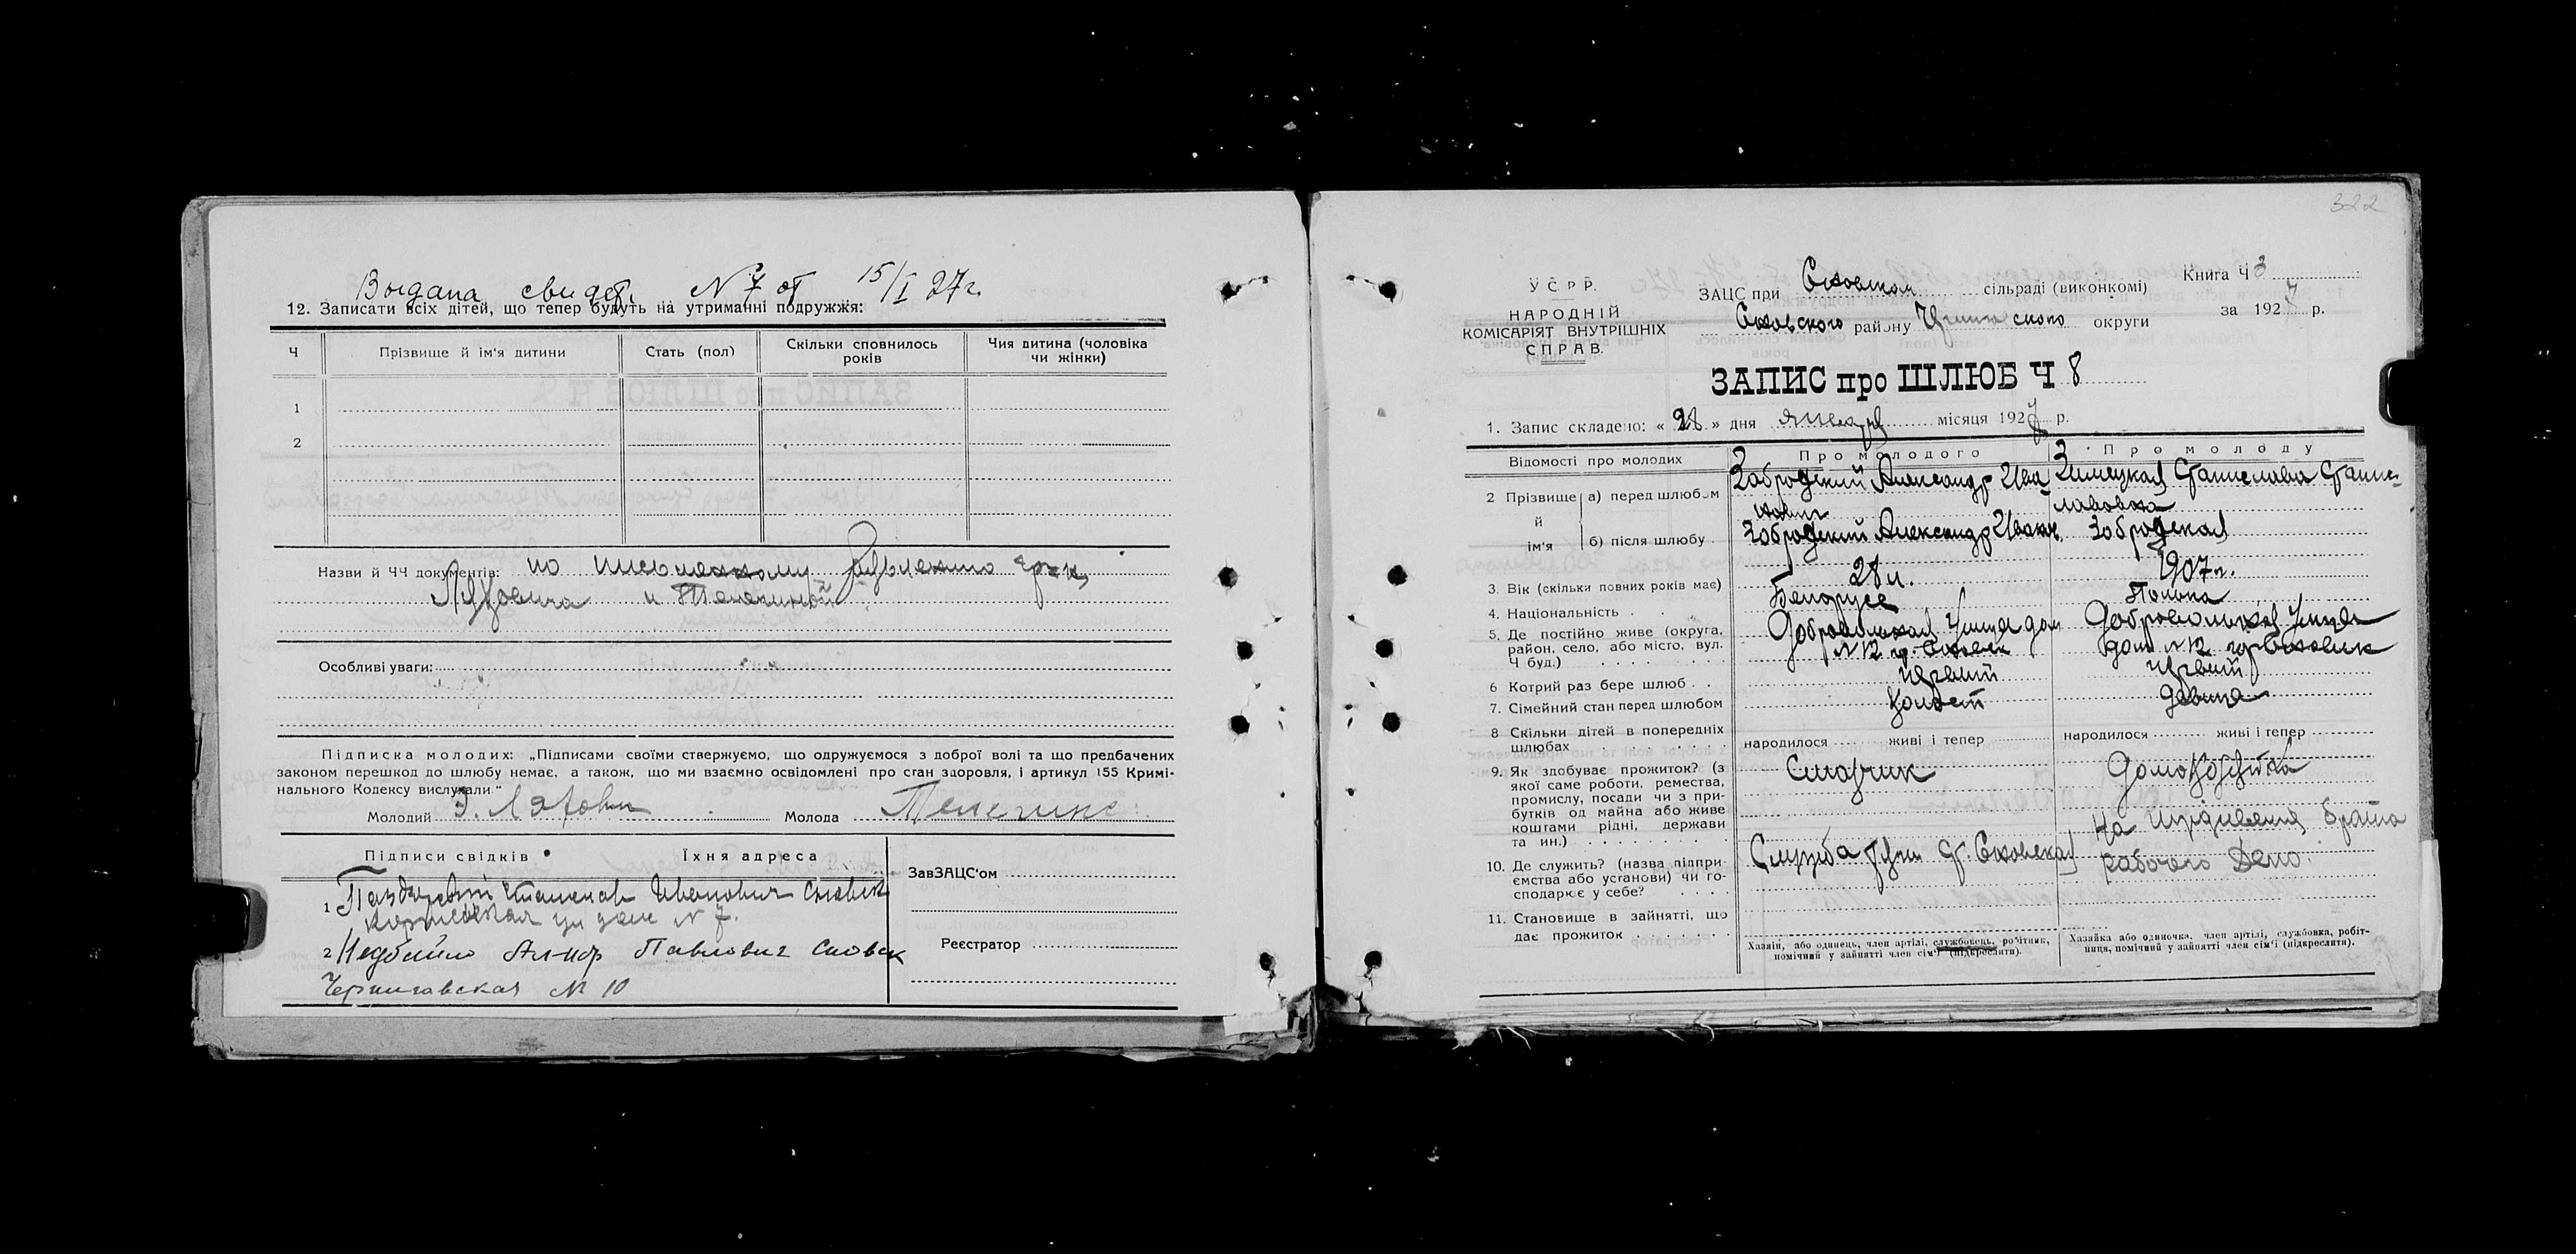 Выдана свидет. № 7 от 15/I 27 г.
12. Записати всіх дітей, що тепер будуть на утриманні подружжя:
Ч
Прізвище й ім'я дитини
Стать (пол)
Скільки сповнилось років
Чия дитина (чоловіка чи жінки)
1
2
Назви й ЧЧ документів: по письменному
и Телегиной
Особливі уваги:
Підписка молодих: „Підписами своїми стверджуємо, що одружуємося з доброї волі та що предбачених
законом перешкод до шлюбу немає, а також, що ми взаємно освідомлені про стан здоровля, і артикул 155 Кримі-
нального Кодексу вислухали"
Молодий
Молода
Підписи свідків
Їхня адреса
1 Иванович Сновск
ул доме № 7.
2 Недбайло Ал-ндр Павлович Сновск
Черниговская № 10
ЗавЗАЦС'ом
Реєстратор
322
УСРР.
НАРОДНІЙ
КОМІСАРІЯТ ВНУТРІШНІХ
СПРАВ.
ЗАЦС при Сновском сільраді (виконкомі)
Сновского району ского округи
Книга Ч 3
за 1927 р.
ЗАПИС про ШЛЮБ Ч 8
1. Запис складено: « 28 » дня января місяця 1927 р.
Відомості про молодих
Про молодого
Про молоду
2 Прізвище й ім'я
а) перед шлюбом
Забродский Александр Ива
нович
Станислава Станис-
лавовна
б) після шлюбу
Забродский Александр Иванов.
Забродская
3. Вік (скільки повних років має)
28 л.
1907 г.
4. Національність
Белорусс
Полька
5. Де постійно живе (округа,
район, село, або місто, вул.
Ч буд.)
Добровольская Улица дом
№ 12 гр. Сновск
Добровольская Улица
дом № 12 гор Сновск
6 Котрий раз бере шлюб
первый
первый
7. Сімейний стан перед шлюбом
холост
девица
8 Скільки дітей в попередніх
шлюбах
народилося живі і тепер
народилося живі і тепер
9. Як здобуває прожиток? (з
якої саме роботи, ремества,
промислу, посади чи з при-
бутків од майна або живе
коштами рідні, держави
та ин.)
Домохозяйка
На брата
рабочего Депо.
10. Де служить? (назва підпри-
ємства або установи) чи го-
сподарює у себе?
Служба ст. Сновская
11. Становище в зайнятті, що
дає прожиток
Хазяїн, або одинець, член артілі, службовець, робітник,
помічний у зайнятті член сім'ї (підкреслити).
Хазяйка або одиночка, член артілі, службовка, робіт-
ниця, помічний у зайнятті член сім'ї (підкреслити).